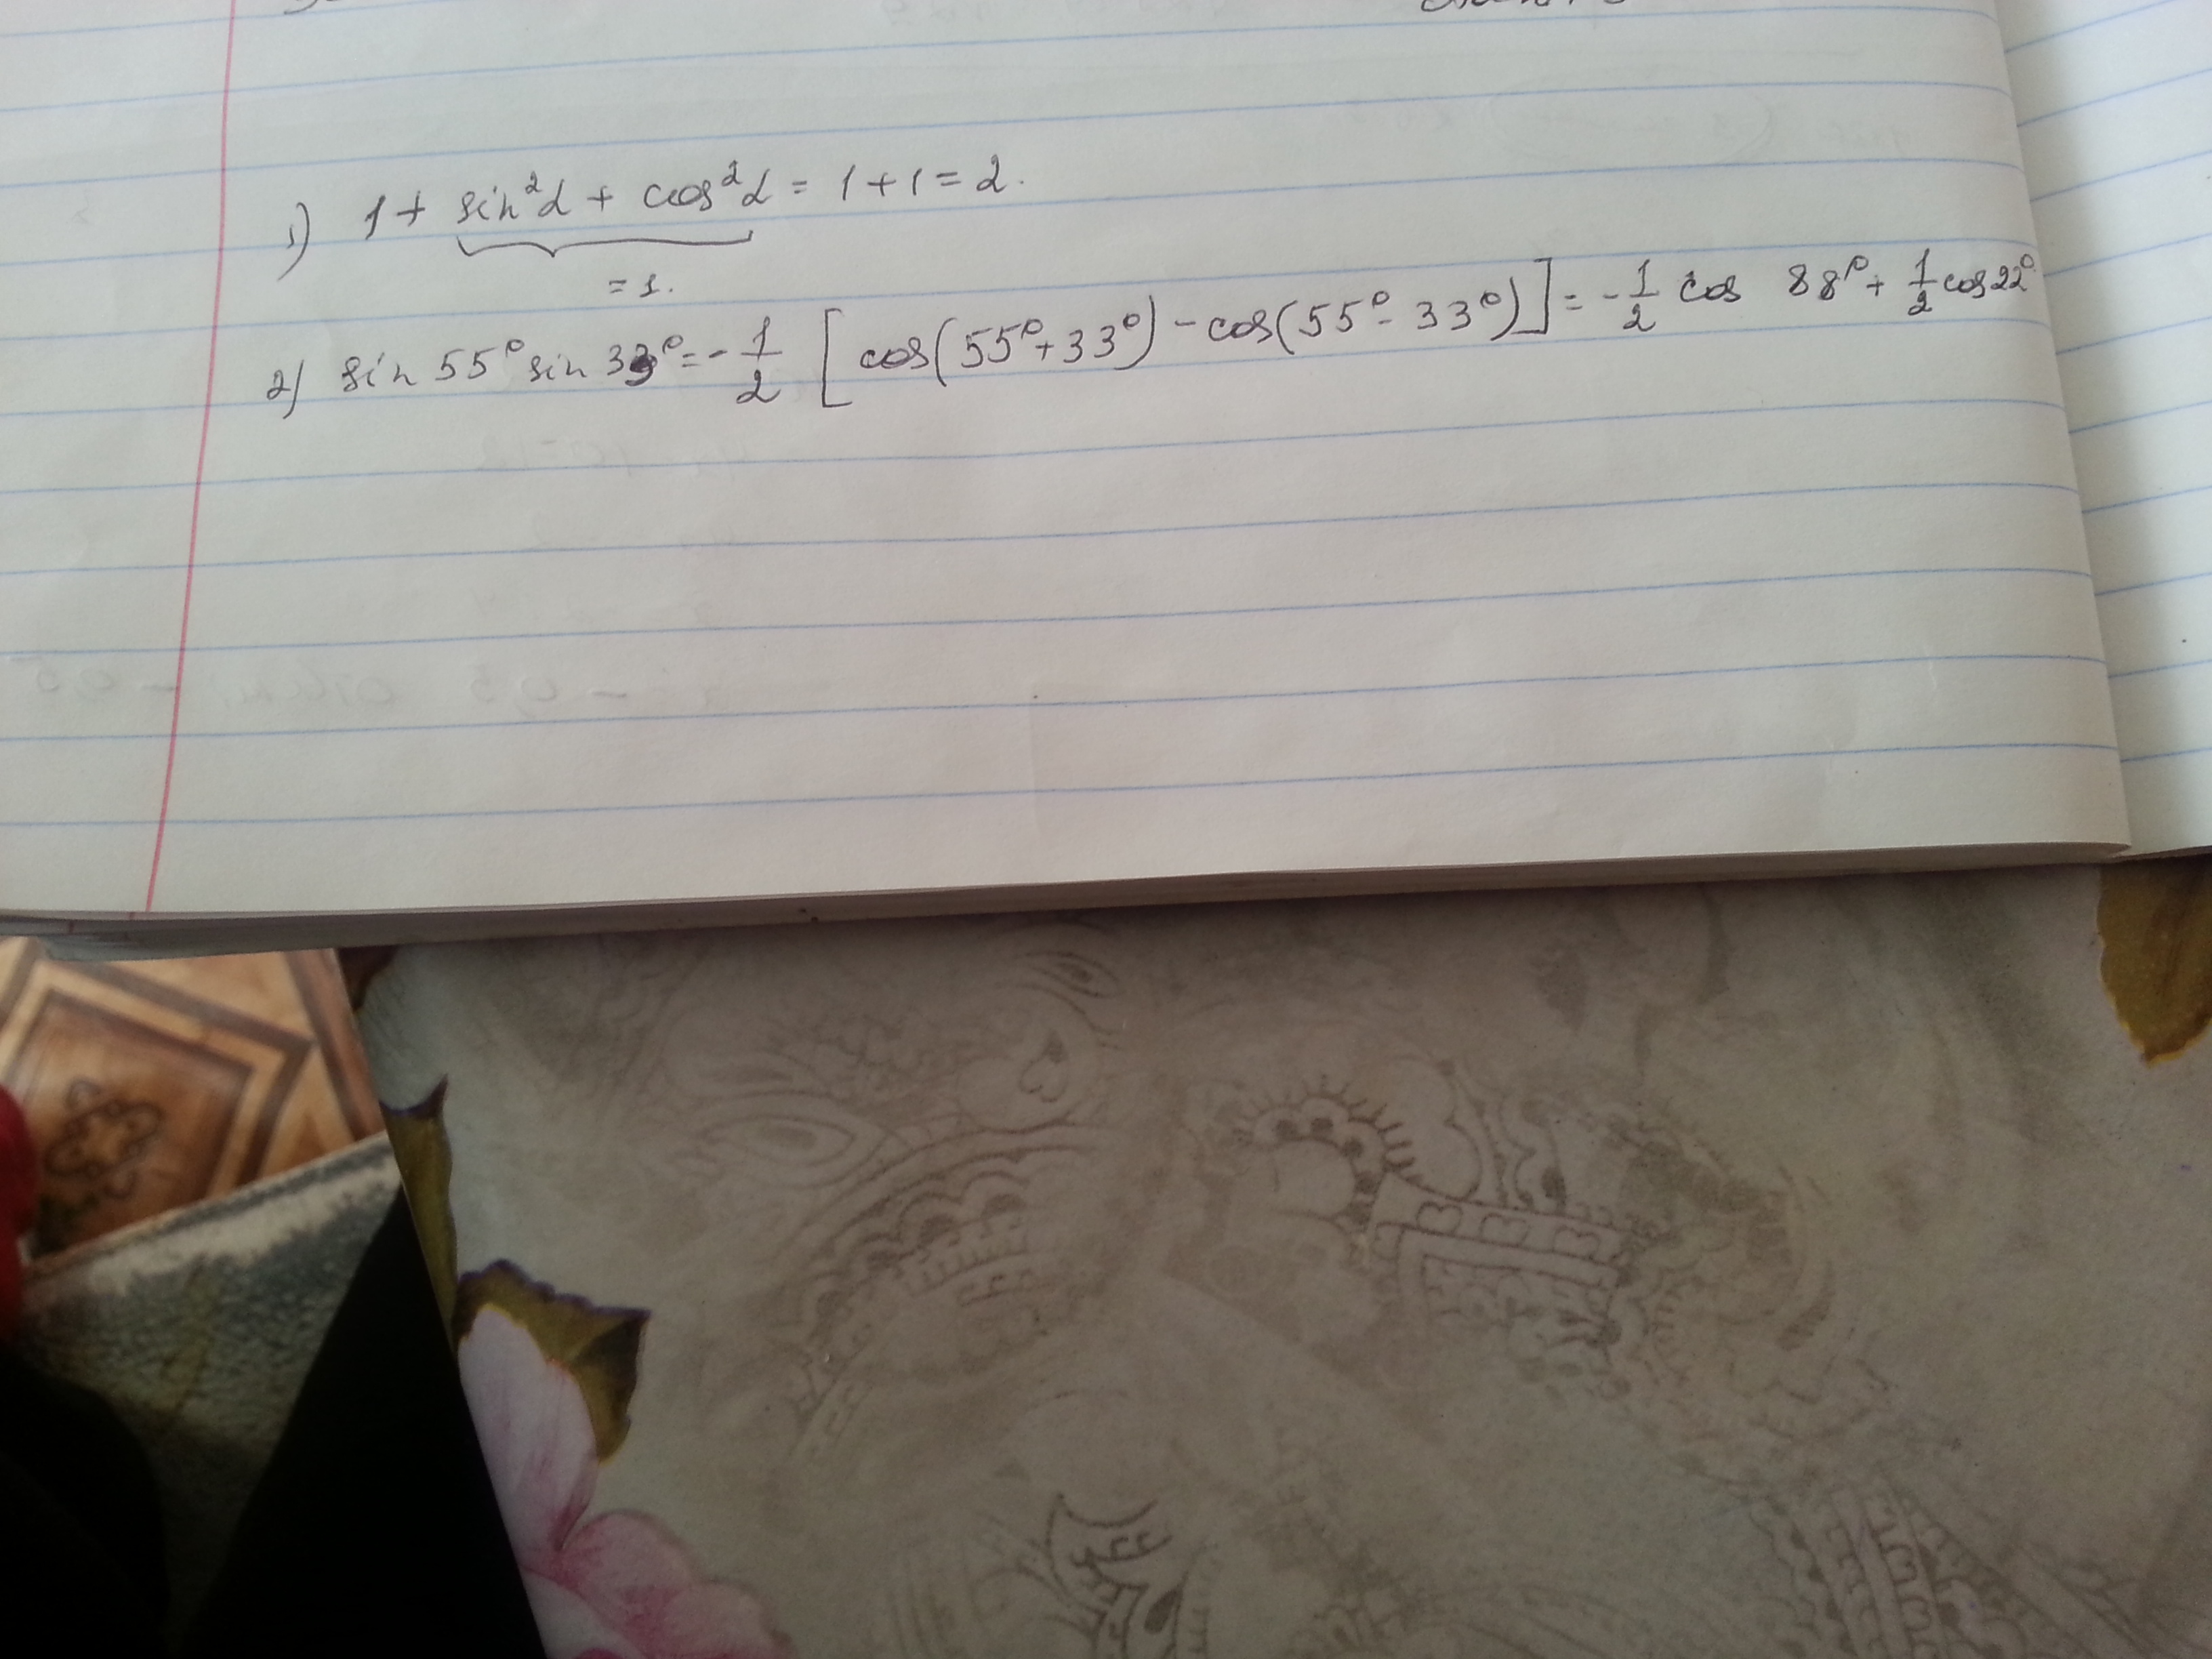 1) 1 + sin²α + cos²α = 1 + 1 = 2.
= 1.
2) sin 55° sin 33° = - 1/2 [cos(55° + 33°) - cos(55° - 33°)] = - 1/2 cos 88° + 1/2 cos 22°